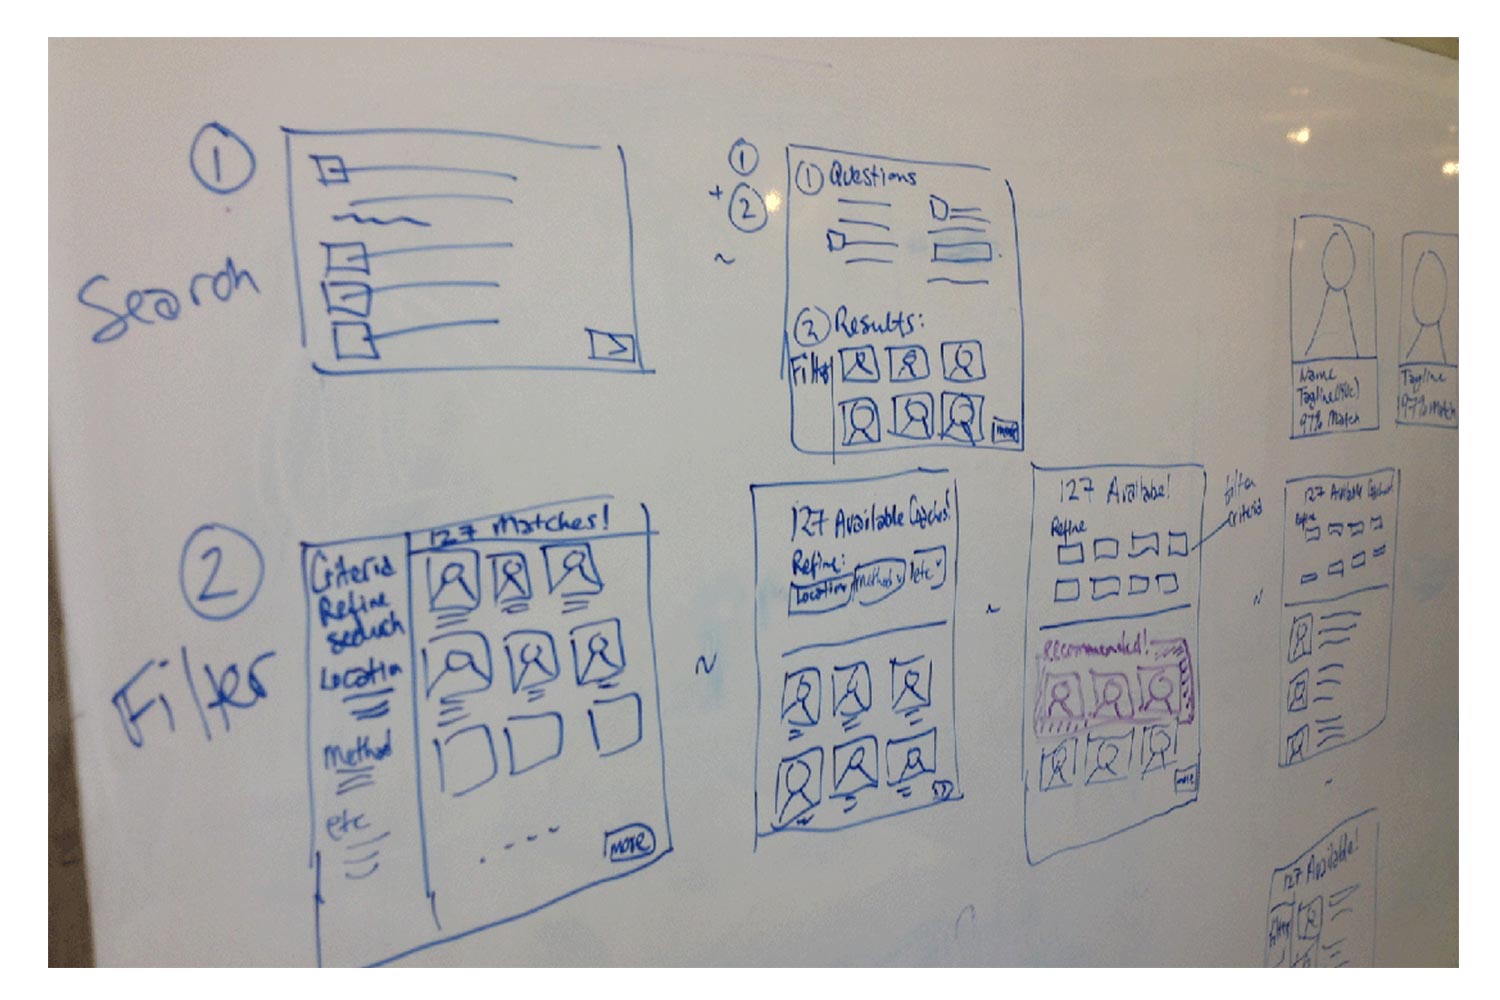 1
Search
1
+
2
~
1 Questions
2 Results:
Filter
more
Name
97% Match
Tagline
97% Match
2
Filter
127 Matches!
Criteria
Refine
Location
Method
etc
more
~
127 Available Coaches!
Refine:
Location
method
etc
~
127 Availabel
Refine
filter
criteria
Recommended!
more
~
127 Available
Refine
~
127 Available!
Filter